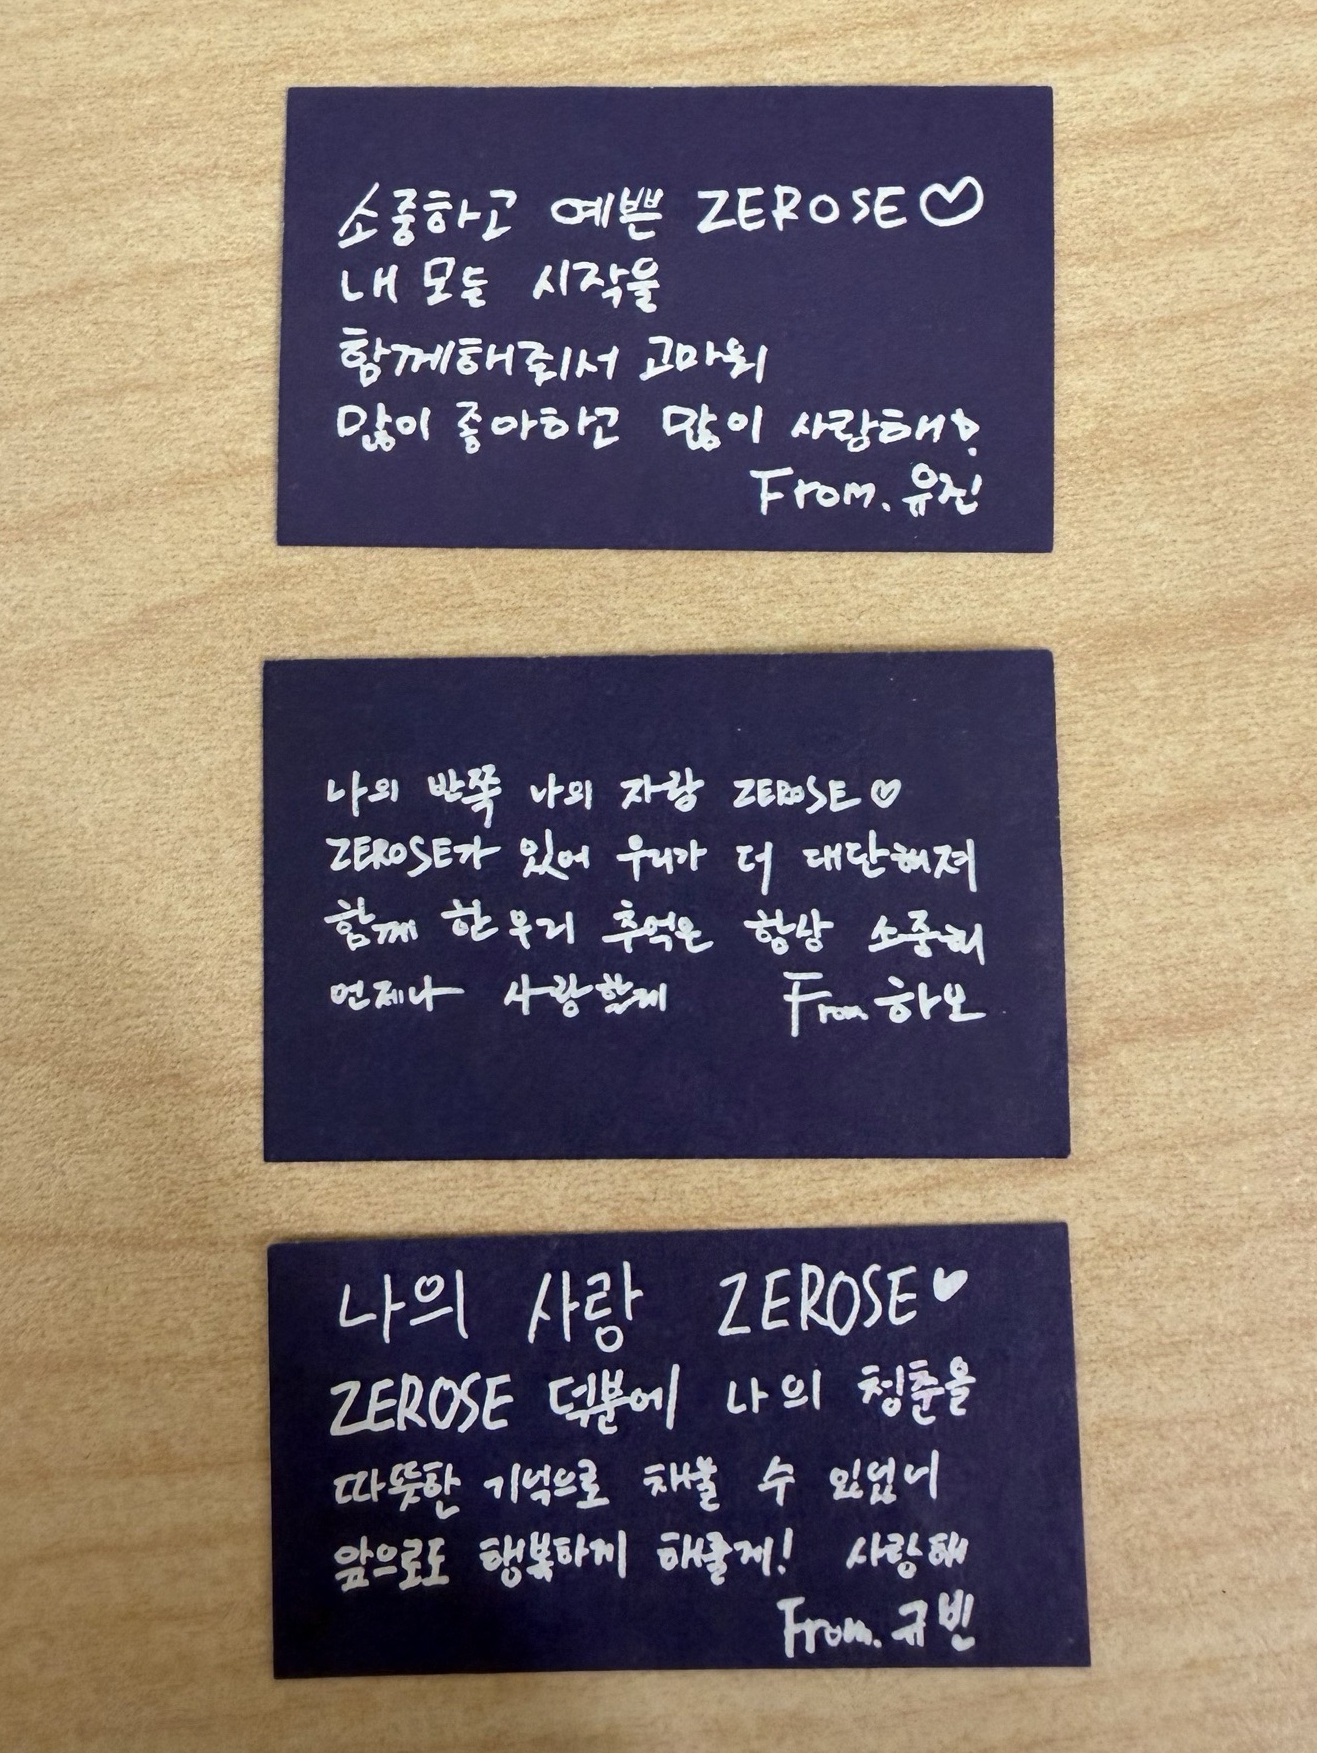 소중하고 예쁜 ZEROSE♡
내 모든 시작을
함께해줘서 고마워
많이 좋아하고 많이 사랑해
From. 유진
나의 반쪽 나의 자랑 ZEROSE♡
ZEROSE가 있어 우리가 더 대단해져
함께 한 우리 추억은 항상 소중해
언제나 사랑할게 From. 하오
나의 사랑 ZEROSE♥
ZEROSE 덕분에 나의 청춘을
따뜻한 기억으로 채울 수 있었어
앞으로도 행복하게 해줄게! 사랑해
From. 규빈